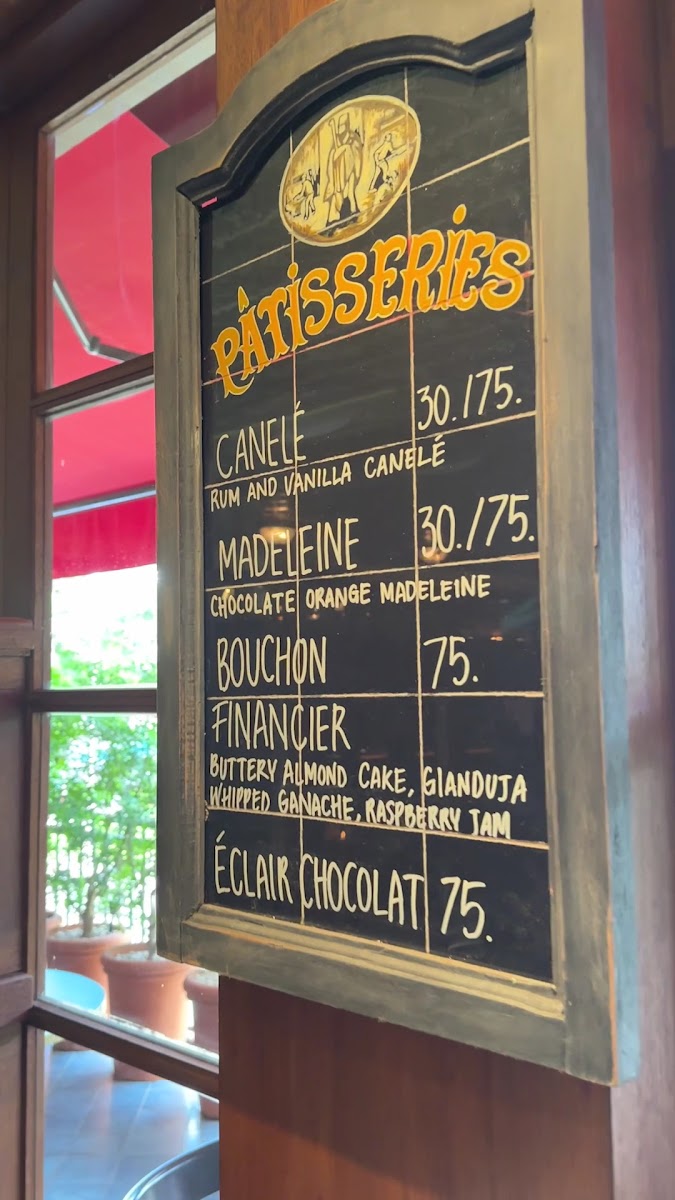 PÂTISSERIES
CANELÉ 30./75.
RUM AND VANILLA CANELÉ
MADELEINE 30./75.
CHOCOLATE ORANGE MADELEINE
BOUCHON 75.
FINANCIER
BUTTERY ALMOND CAKE, GIANDUJA
WHIPPED GANACHE, RASPBERRY JAM
ÉCLAIR CHOCOLAT 75.